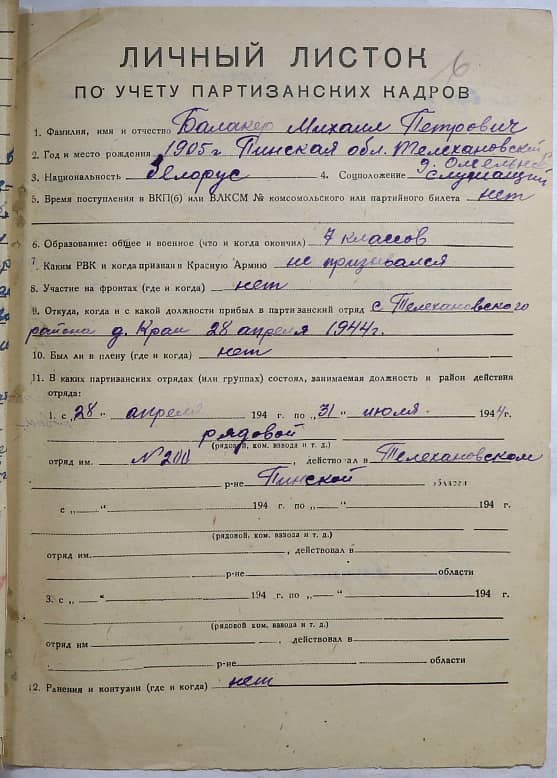 6
ЛИЧНЫЙ ЛИСТОК
ПО УЧЕТУ ПАРТИЗАНСКИХ КАДРОВ
1. Фамилия, имя и отчество Балакер Михаил Петрович
2. Год и место рождения 1905г Пинская обл. Телехановской
3. Национальность белорус 4. Соцположение служащий
5. Время поступления в ВКП(б) или ВЛКСМ № комсомольского или партийного билета нет
6. Образование: общее и военное (что и когда окончил) 7 классов
7. Каким РВК и когда призван в Красную Армию не призывался
8. Участие на фронтах (где и когда) нет
9. Откуда, когда и с какой должности прибыл в партизанский отряд с Телехановского
района д. Краи 28 апреля 1944г.
10. Был ли в плену (где и когда) нет
11. В каких партизанских отрядах (или группах) состоял, занимаемая должность и район действия
отряда:
1. с „28" апреля 194 г. по „31" июля 1944г.
рядовой
(рядовой, ком. взвода и т. д.)
отряд им. №200, действовал в Телехановском
р-не Пинской области
с „ " 194 г. по „ " 194 г.
(рядовой, ком. взвода и т. д.)
отряд им. , действовал в
р-не области
3. с „ " 194 г. по „ " 194 г.
(рядовой, ком. взвода и т. д.)
отряд им , действовал в
р-не области
12. Ранения и контузии (где и когда) нет